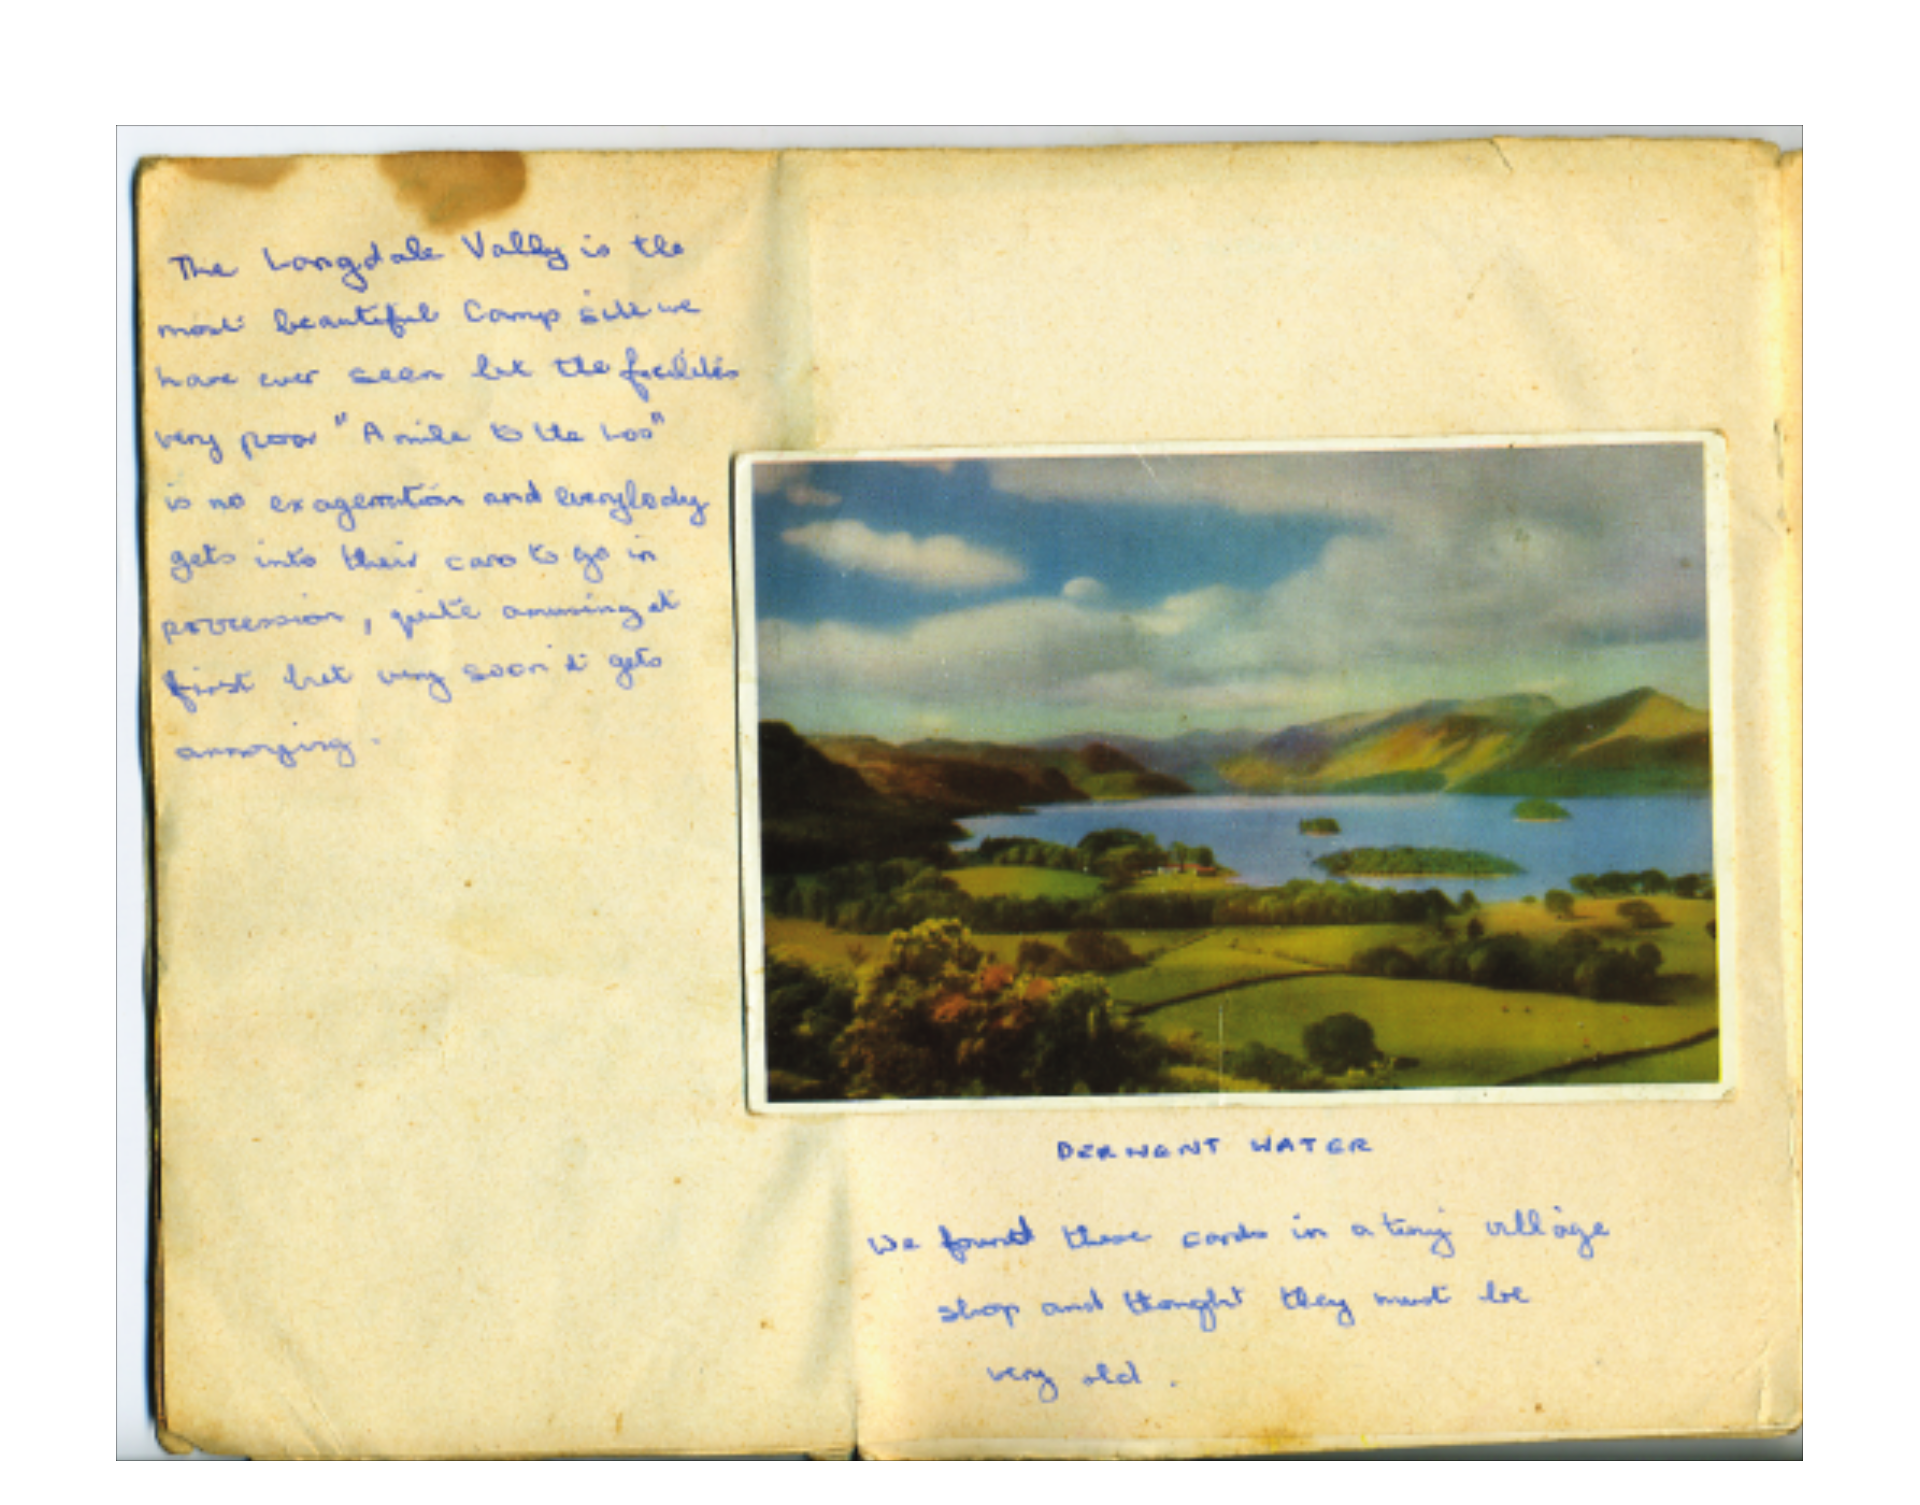 The Langdale Vally is the
most beautiful Camp site we
have ever seen but the facilités
very poor "A mile to the Loo"
is no exageration and everybody
gets into their cars to go in
procession, quite amusing at
first but very soon it gets
annoying.
DERWENT WATER
We found these cards in a tiny village
shop and thought they must be
very old.